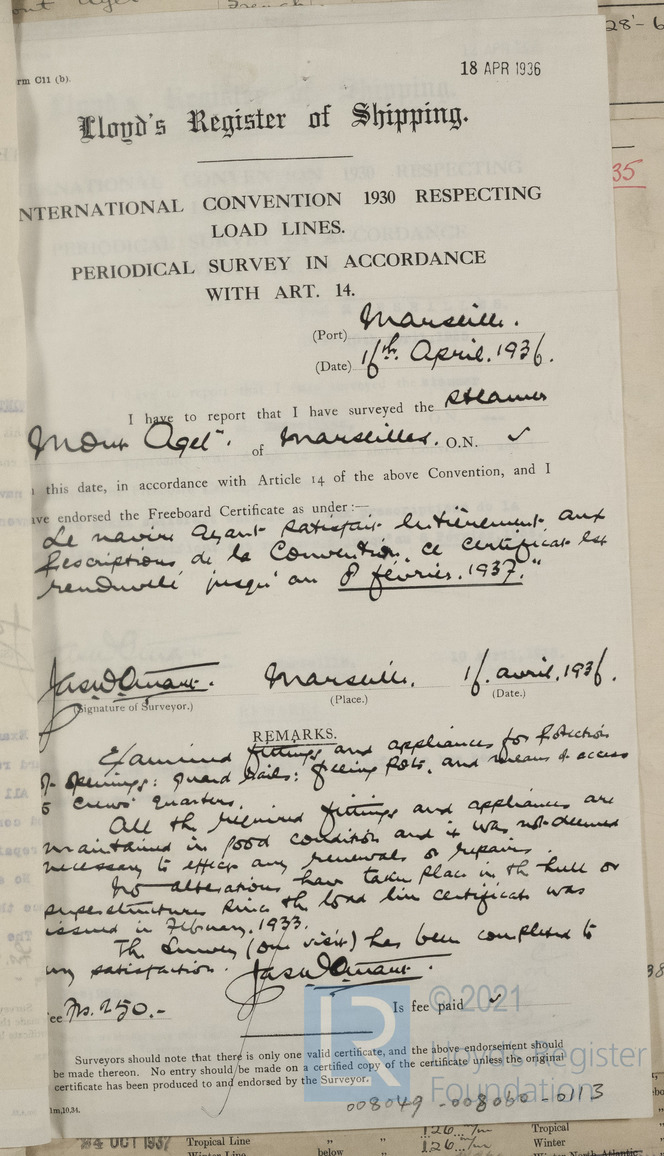 rm C11 (b).
18 APR 1936
Lloyd's Register of Shipping.
NTERNATIONAL CONVENTION 1930 RESPECTING
LOAD LINES.
PERIODICAL SURVEY IN ACCORDANCE
WITH ART. 14.
(Port) Marseille.
(Date) 16th April. 1936.
I have to report that I have surveyed the steamer
"Mont Agel". of Marseilles. O.N. ✓
this date, in accordance with Article 14 of the above Convention, and I
ave endorsed the Freeboard Certificate as under :—
Le navire ayant satisfait entièrement aux
Prescriptions de la Convention, ce certificat est
renouvelé jusqu'au 8 février. 1937."
Marseille. 16. avril, 1936.
(Signature of Surveyor.) (Place.) (Date.)
REMARKS.
Examined fittings and appliances for Protection
of openings: guard rails: freeing Ports, and means of access
to crews' quarters.
All the required fittings and appliances are
maintained in good condition and it was not deemed
necessary to effect any renewals or repairs.
No alterations have taken place in the hull or
superstructures since the load line certificate was
issued in February, 1933.
The Survey (one visit) has been completed to
my satisfaction.
ee Frs. 250.- Is fee paid ✓
Surveyors should note that there is only one valid certificate, and the above endorsement should
be made thereon. No entry should be made on a certified copy of the certificate unless the original
certificate has been produced to and endorsed by the Surveyor.
1m,10,34.
© 2021
Lloyd's Register
Foundation
008049-008060-0113
28'-6
35
OCT 1937
Tropical Line " " 126 m/m Tropical
Winter Line below " 126 m/m Winter